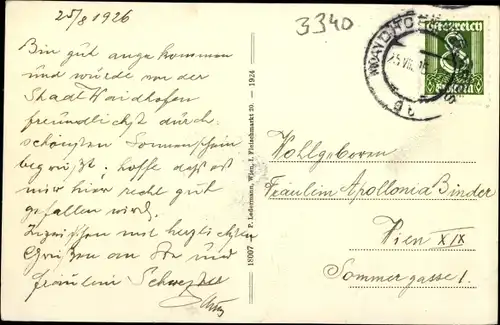 25/8 1926
Bin gut angekommen
und würde von der
Stadt Waidhofen
freundlichst durch
schönsten Sonnenschein
begrüßt; hoffe daß es
mir hier recht gut
gefallen wird.
Inzwischen mit herzlichsten
Grüßen an Sie und
Fräulein Schwester
18007 — P. Ledermann, Wien, I. Fleischmarkt 20. — 1924
3340
Österreich
8
WAIDHOFEN
25.VIII.
Wohlgeboren
Fräulein Apollonia Binder
Wien XIX
Sommergasse 1.